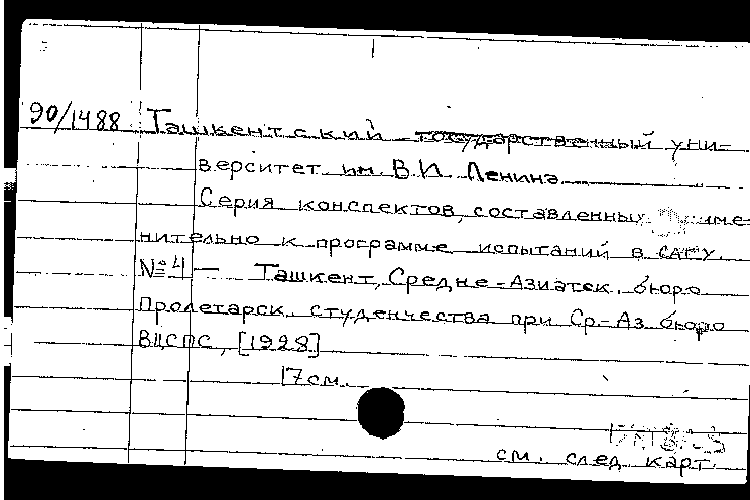 90/1488 Ташкентский государственный уни-
верситет им. В.И. Ленина.
Серия конспектов, составленных
нительно к программе испытаний в САГУ.
№4 — Ташкент, Средне-Азиатск. бюро
Пролетарск. студенчества при Ср.-Аз. бюро
ВЦСПС, [1928]
17 см.
см. след. карт.